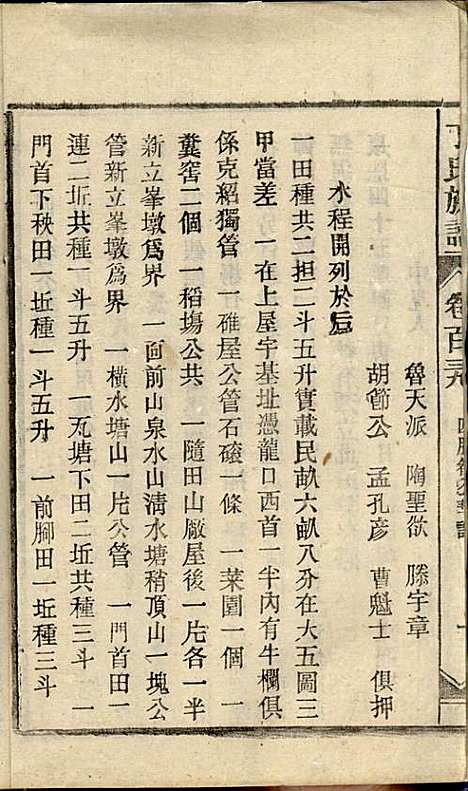 魯天派 陶聖欲 滕宇章
胡節公 孟孔彥 曹魁士 俱押
水程開列於后
一田種共二担二斗五升實載民畝六畝八分在大五圖三
甲當差 一在上屋宇基址憑龍口西首一半內有牛欄俱
係克紹獨管 一碓屋公管石磙一條 一菜園一個 一
糞窖二個 一稻塲公共 一隨田山廠屋後一片各一半
新立峯墩爲界 一面前山泉水山淸水塘稍頂山一塊公
管新立峯墩爲界 一橫水塘山一片公管 一門首田一
連二坵共種一斗五升 一瓦塘下田二坵共種三斗 一
門首下秧田一坵種一斗五升 一前脚田一坵種三斗
丁氏族譜 卷百